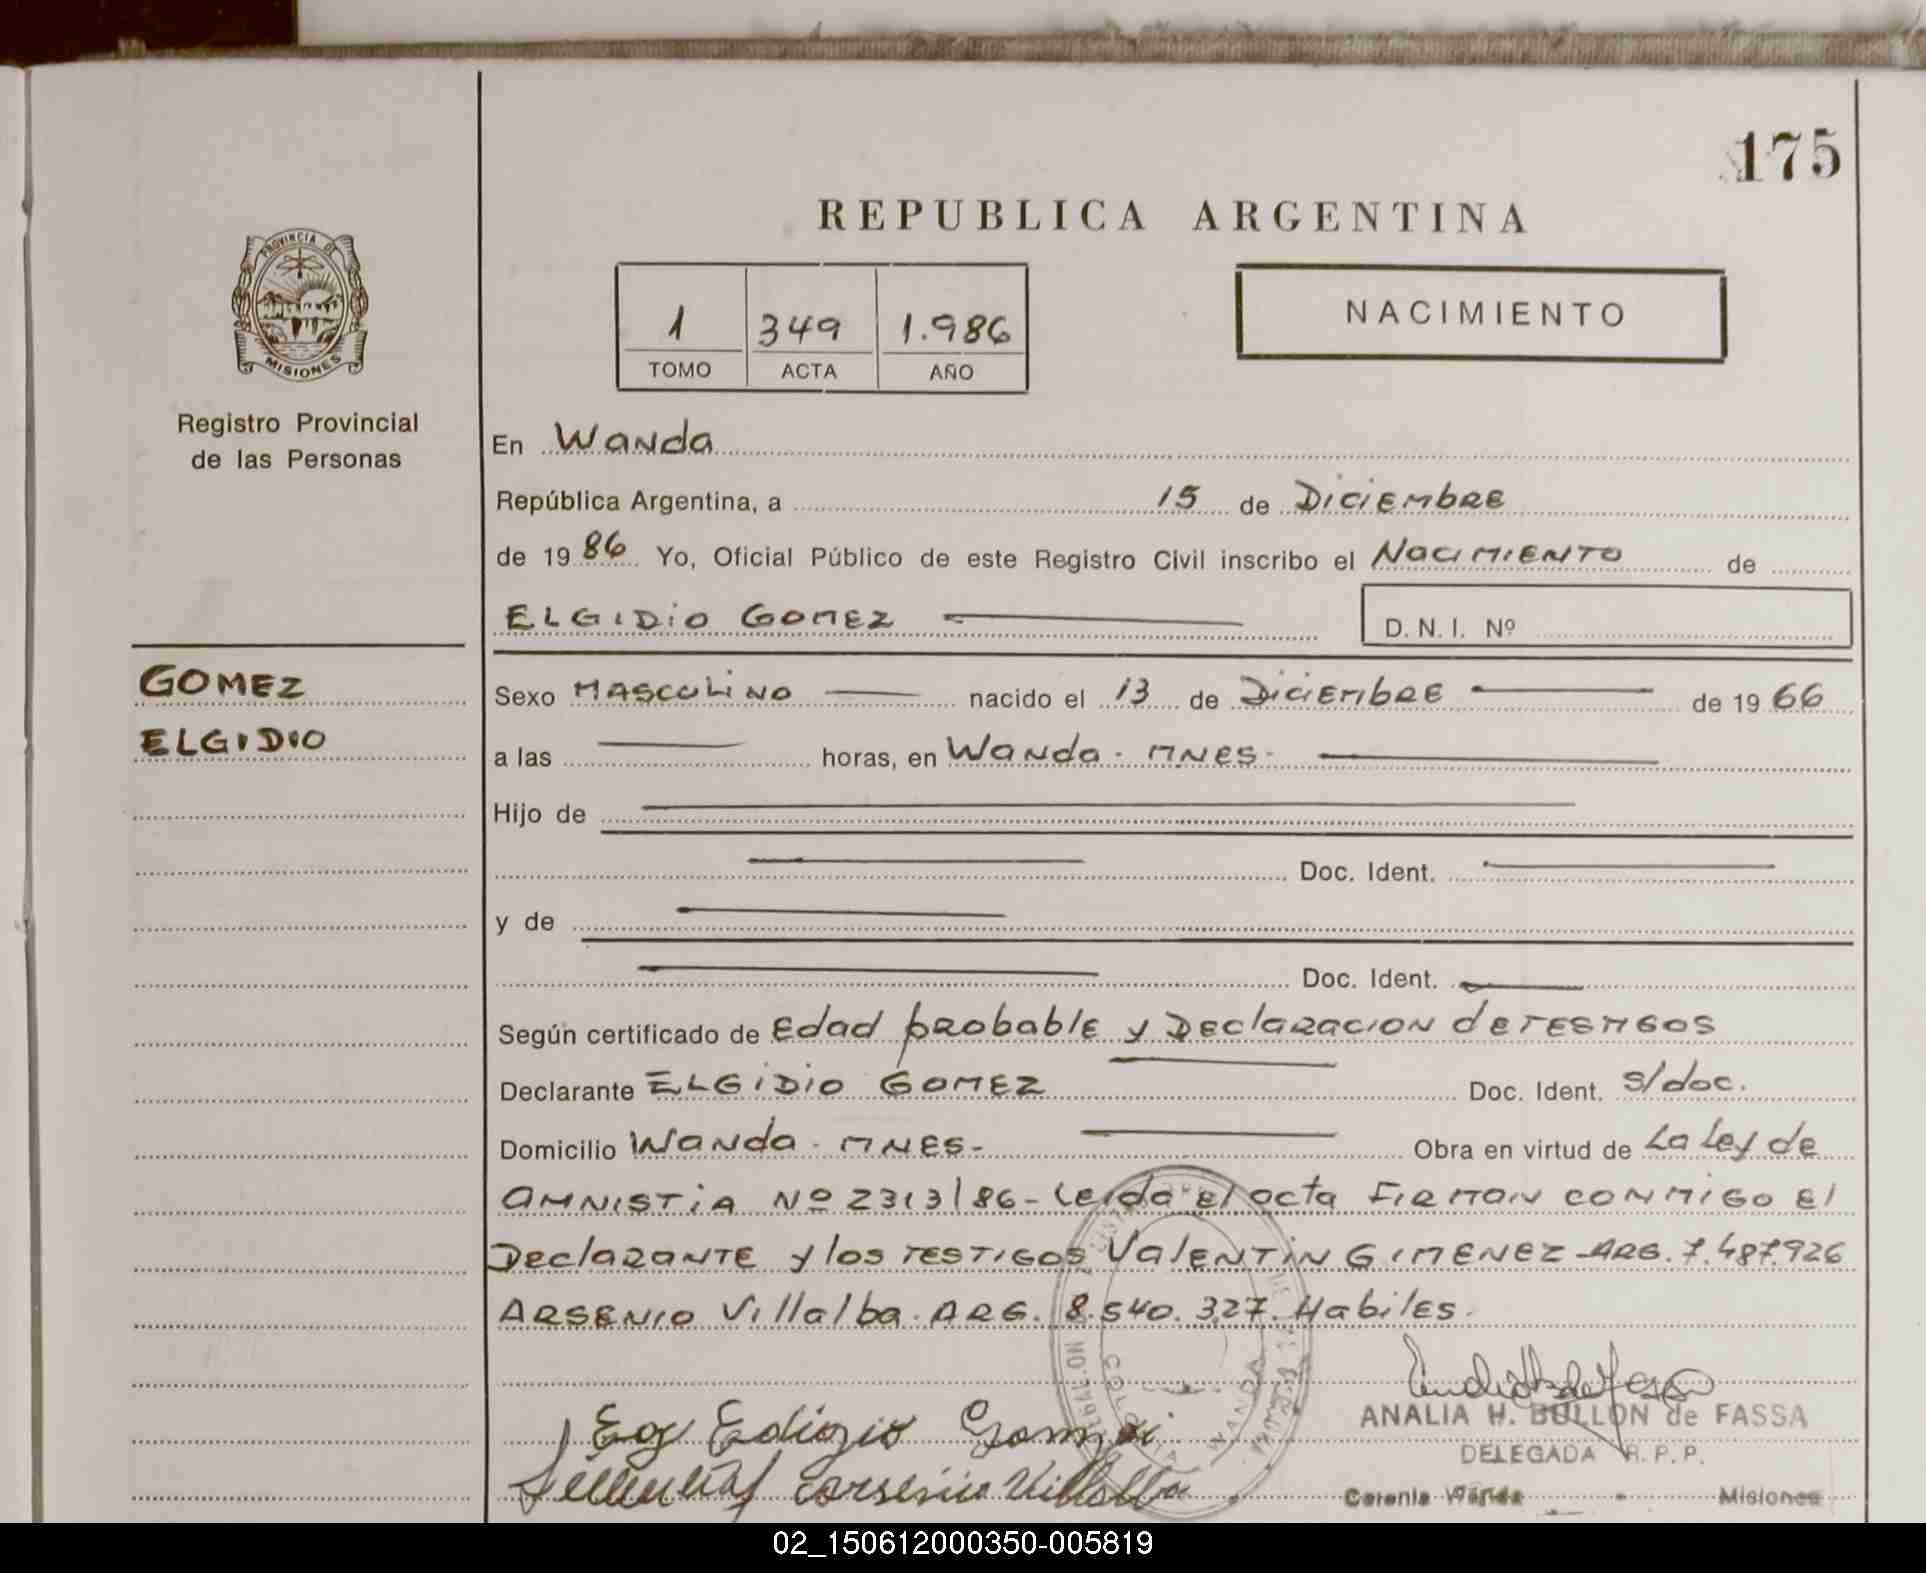 175
REPUBLICA ARGENTINA
PROVINCIA DE
MISIONES
Registro Provincial
de las Personas
1 349 1.986
TOMO ACTA AÑO
NACIMIENTO
En Wanda
República Argentina, a 15 de Diciembre
de 19 86 Yo, Oficial Público de este Registro Civil inscribo el Nacimiento de
ELGIDIO GOMEZ
D. N. I. Nº
GOMEZ
ELGIDIO
Sexo MASCULINO nacido el 13 de Diciembre de 19 66
a las horas, en Wanda - MNES-
Hijo de
Doc. Ident.
y de
Doc. Ident.
Según certificado de Edad probable y Declaracion de testigos
Declarante ELGIDIO GOMEZ Doc. Ident. s/doc.
Domicilio Wanda - MNES- Obra en virtud de La Ley de
AMNISTIA Nº 2313/86- Leida el acta FIRMAN CONMIGO El
Declarante y los TESTIGOS Valentin GIMENEZ ARG. 7.487.926
ARSENIO Villalba. ARG. 8.540.327. Habiles.
COLONIA WANDA
ANALIA H. BULLON de FASSA
DELEGADA R. P. P.
Colonia Wanda - Misiones
Arsenio Villalba
02_150612000350-005819